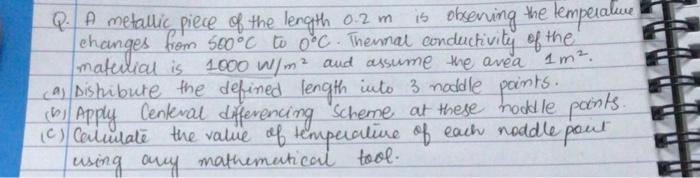 Q. A metallic piece of the length 0.2 m is observing the temperature
changes from 500°C to 0°C. Thermal conductivity of the
material is 1000 W/m² and assume the area 1 m².
(a) Distribute the defined length into 3 noddle points.
(b) Apply Centeral differencing scheme at these noddle points.
(c) Calculate the value of temperature of each noddle point
using any mathematical tool.